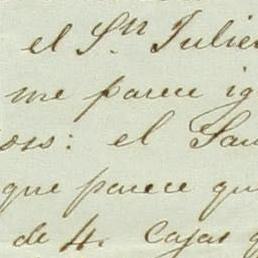 el Sr. Julie
me parece ig
oss: el Sa
que parece qu
de 4. Cajas q